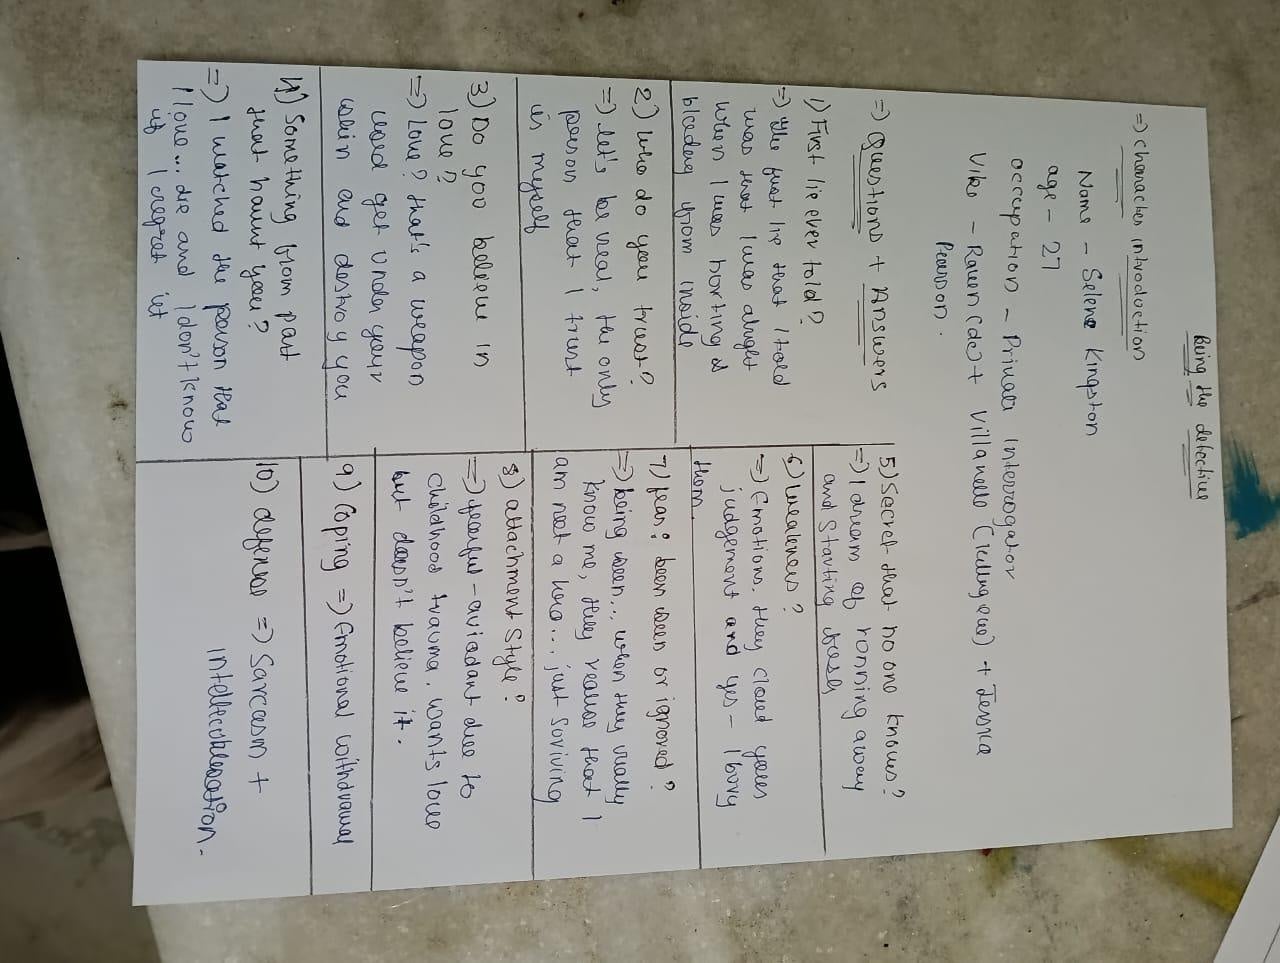 Being the detective
=> Character introduction
Name - Selene Kingston
age - 27
occupation - Private Interrogator
Vibe - Raven (dc) + Villanelle (killing eve) + Jessica
Pearson.
=> Questions + Answers
1) First lie ever told?
=> The first lie that I told
was that I was alright
when I was horting &
bleeding from inside
2) Who do you trust?
=> let's be real, the only
person that I trust
is myself
3) Do you believe in
love?
=> Love? that's a weapon
used get under your
skin and destroy you
4) Something from past
that haunt you?
=> I watched the person that
I love... die and I don't know
if I regret it
5) Secret that no one knows?
=> I dream of ronning away
and starting fresh
6) weakness?
=> Emotions. they cloud
judgement and yes - I bury
them.
7) fear: been seen or ignored?
=> being seen... when they really
know me, they realise that I
am not a hero... just soriving
8) attachment style?
=> fearful-aviodant due to
childhood trauma. wants love
but doesn't believe it.
9) Coping => Emotional withdrawal
10) defense => Sarcasm +